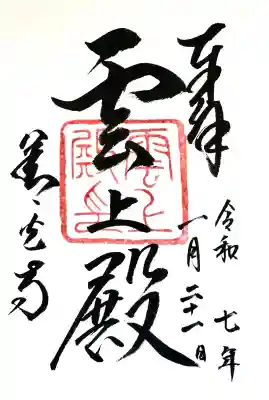 奉拝
令和七年
一月二十一日
雲上殿
善光寺